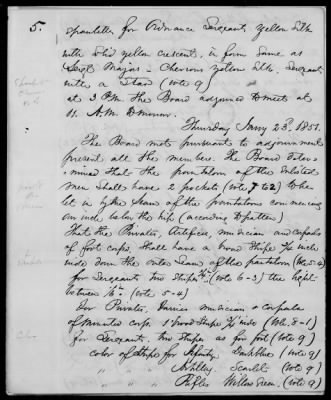 5.
epaulette for Ordnance Sergeant Yellow Silk
with solid yellow crescent, in form same as
Sergt Majors - Chevrons Yellow Silk, Sergeant
with a Star (Vote 9)
at 3 P.M. the Board adjourned to meet at
11. A.M. tomorrow.
Thursday Jany 23d, 1851.
The Board met pursuant to adjournment
present all the members. The Board deter-
mined that the pantaloon of the enlisted
men shall have 2 pockets (vote 7 to 2) to be
let in by the seam of the pantaloons commencing
an inch below the hip (according to pattern)
That the Privates, Artificers, musicians and corporals
of foot corps, shall have a broad stripe inch
wide down the outer seam of the pantaloon (Vote 5-4)
for Sergeants, two stripes (vote 6-3) the light
between (vote 5-4)
For Privates, Farriers musicians & corporals
of mounted corps, 1 broad stripe wide (Vote 8-1)
for Sergeants, two stripes as for foot (vote 9)
color of stripe for Infantry Dark blue (vote 9)
" " " Artillery Scarlet (vote 9)
" " " Rifles Willow Green. (vote 9)